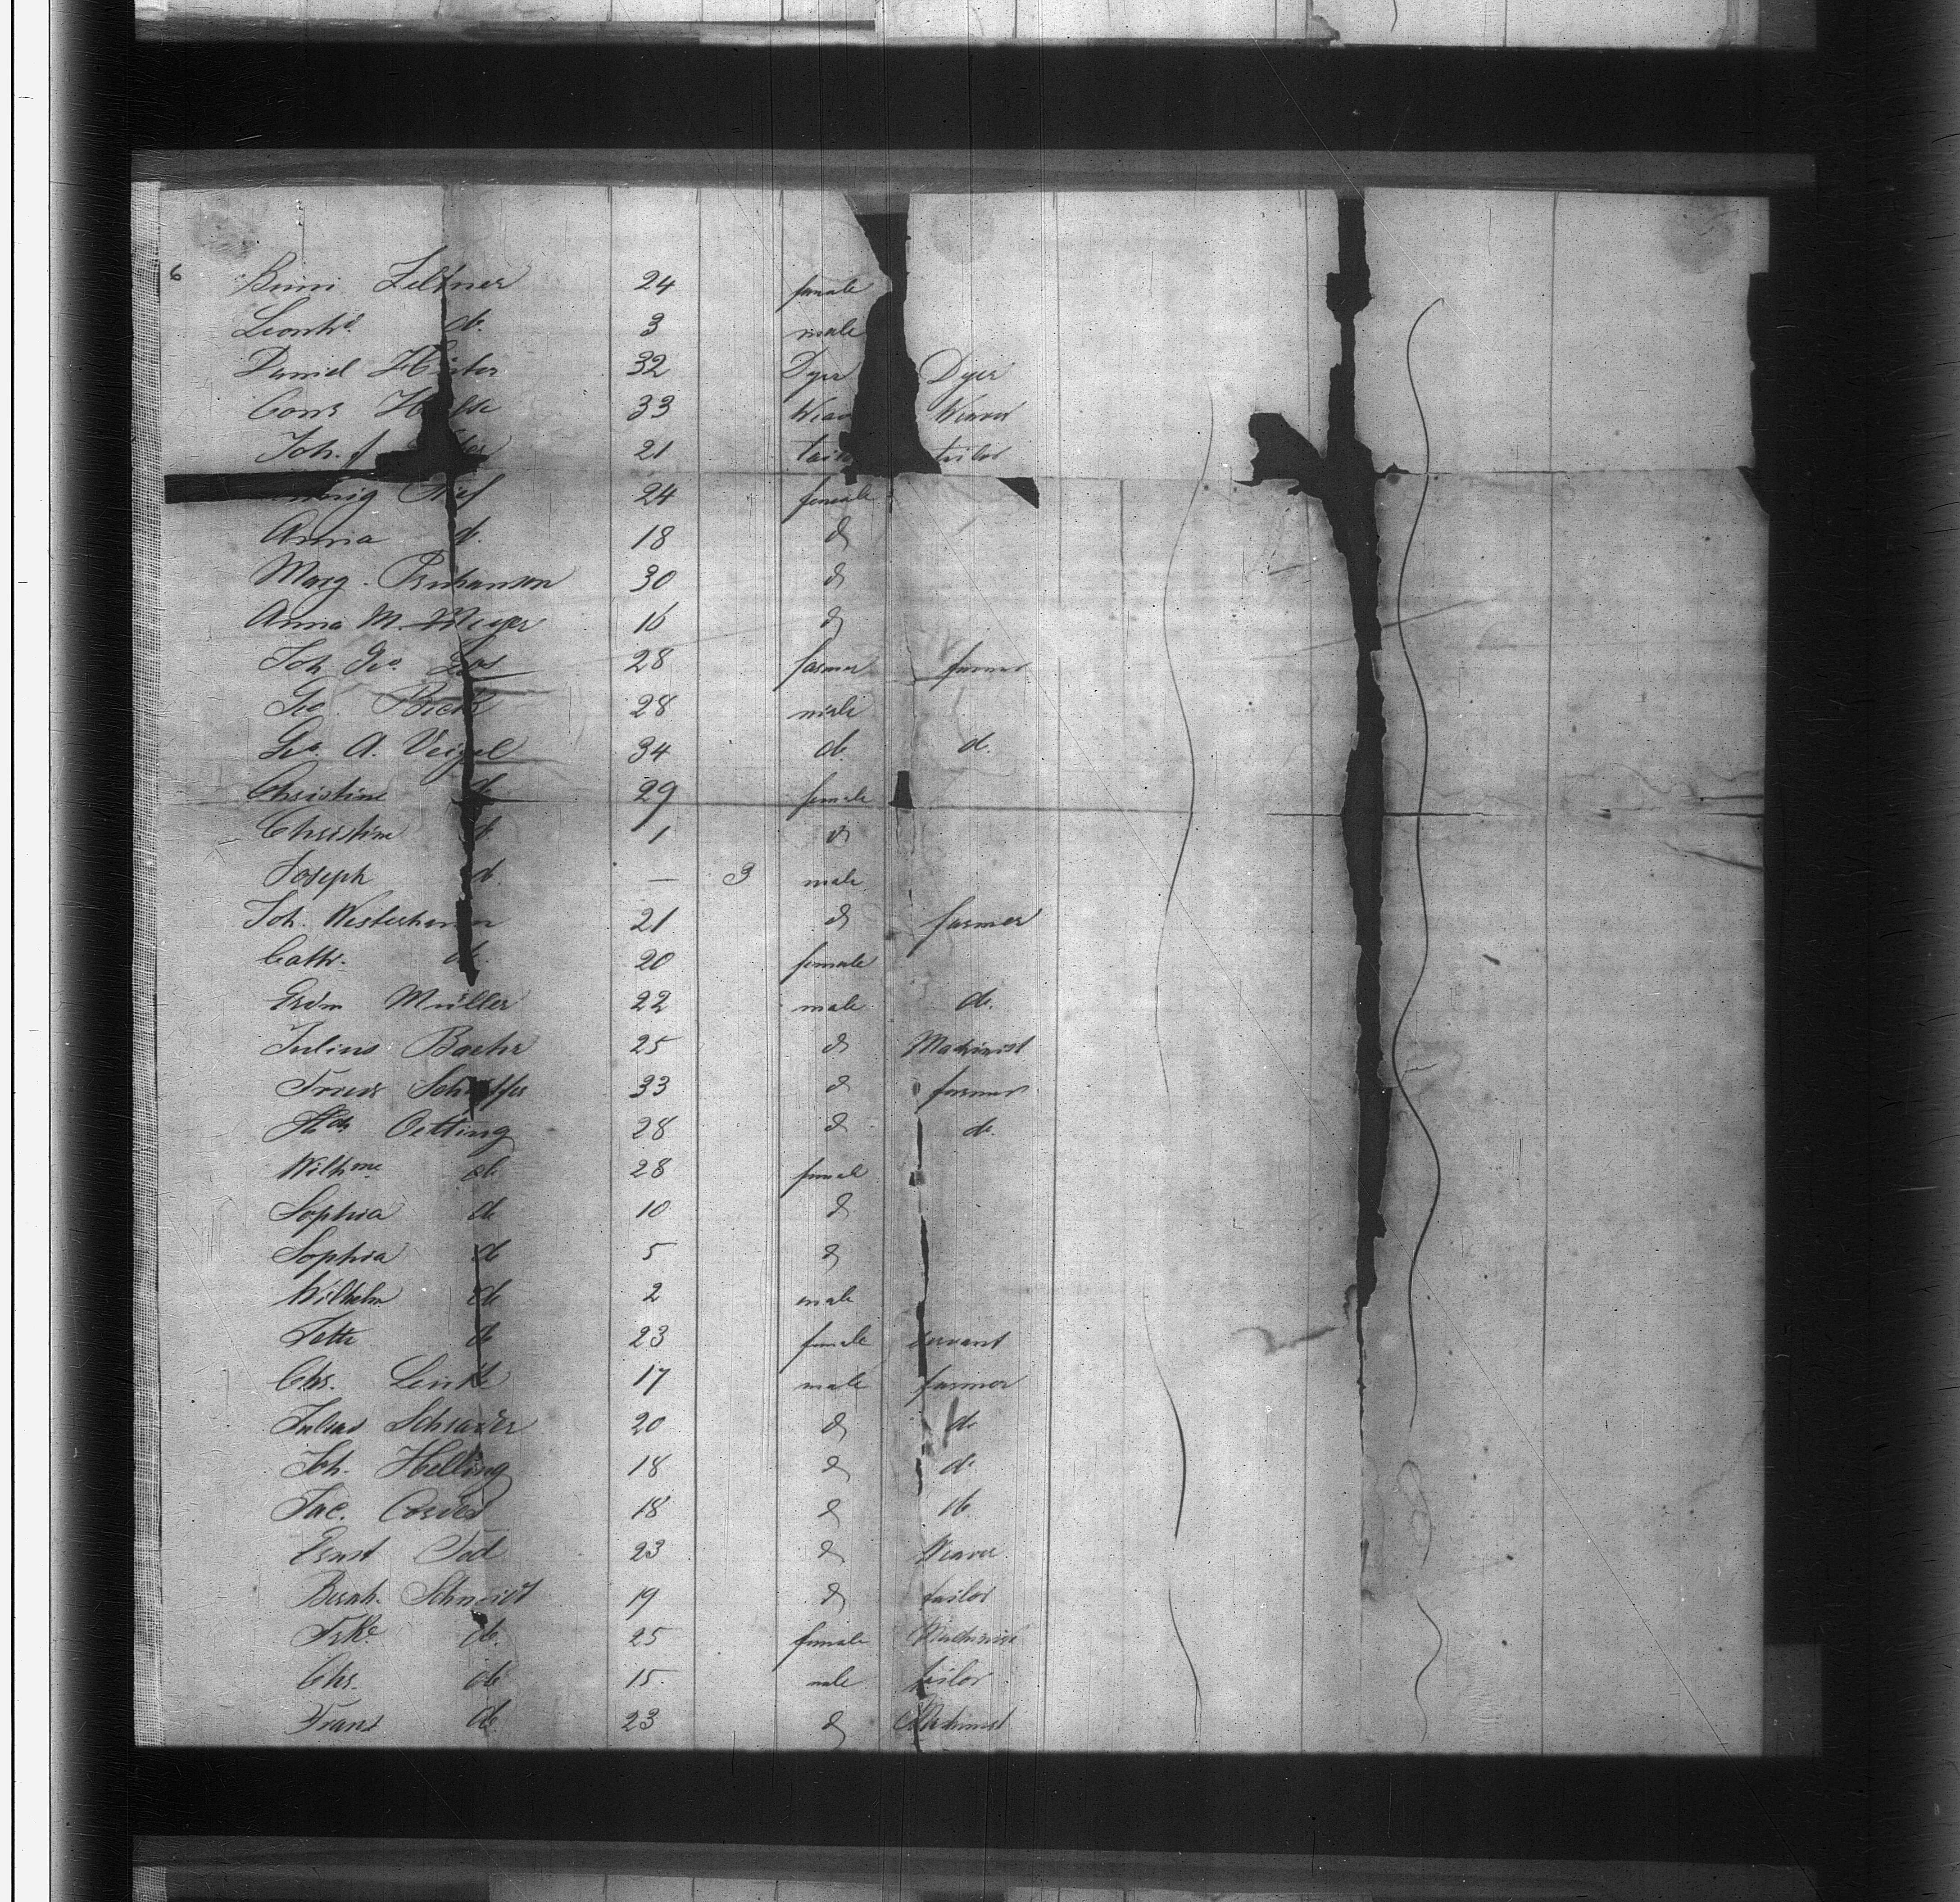 6
Zeltner 24 female
Leonhd do. 3 male
Daniel 32 Dyer Dyer
Cons 33 Weav Weaver
Joh. f 21 tailo tailor
24 female
Anna do. 18 do
Marg. 30 do
Anna M. Meyer 16 do
Joh Geo. 28 farmer farmer
Geo. Bick 28 male
Geo. A. Veigel 34 do. do.
Christine do. 29 female
Christine do 1 do
Joseph do. — 3 male
Joh. Westerha 21 do farmer
Cath. do. 20 female
Erdm Müller 22 male do.
Julius Baehr 25 do Machinist
Friedr Schäffer 33 do farmer
Oetting 28 do do.
Wilhme do 28 female
Sophia do 10 do
Sophia do 5 do
Wilhelm do 2 male
Jette do 23 female servant
Chr. 17 male farmer
Julius Schrader 20 do do
Joh. Helling 18 do do
Jac. Cordes 18 do do.
Ernst Tod 23 do Weaver.
Bernh. Schmidt 19 do tailor
Frke do. 25 female Machinist
Chr. do 15 male tailor
Franz do. 23 do Machinist